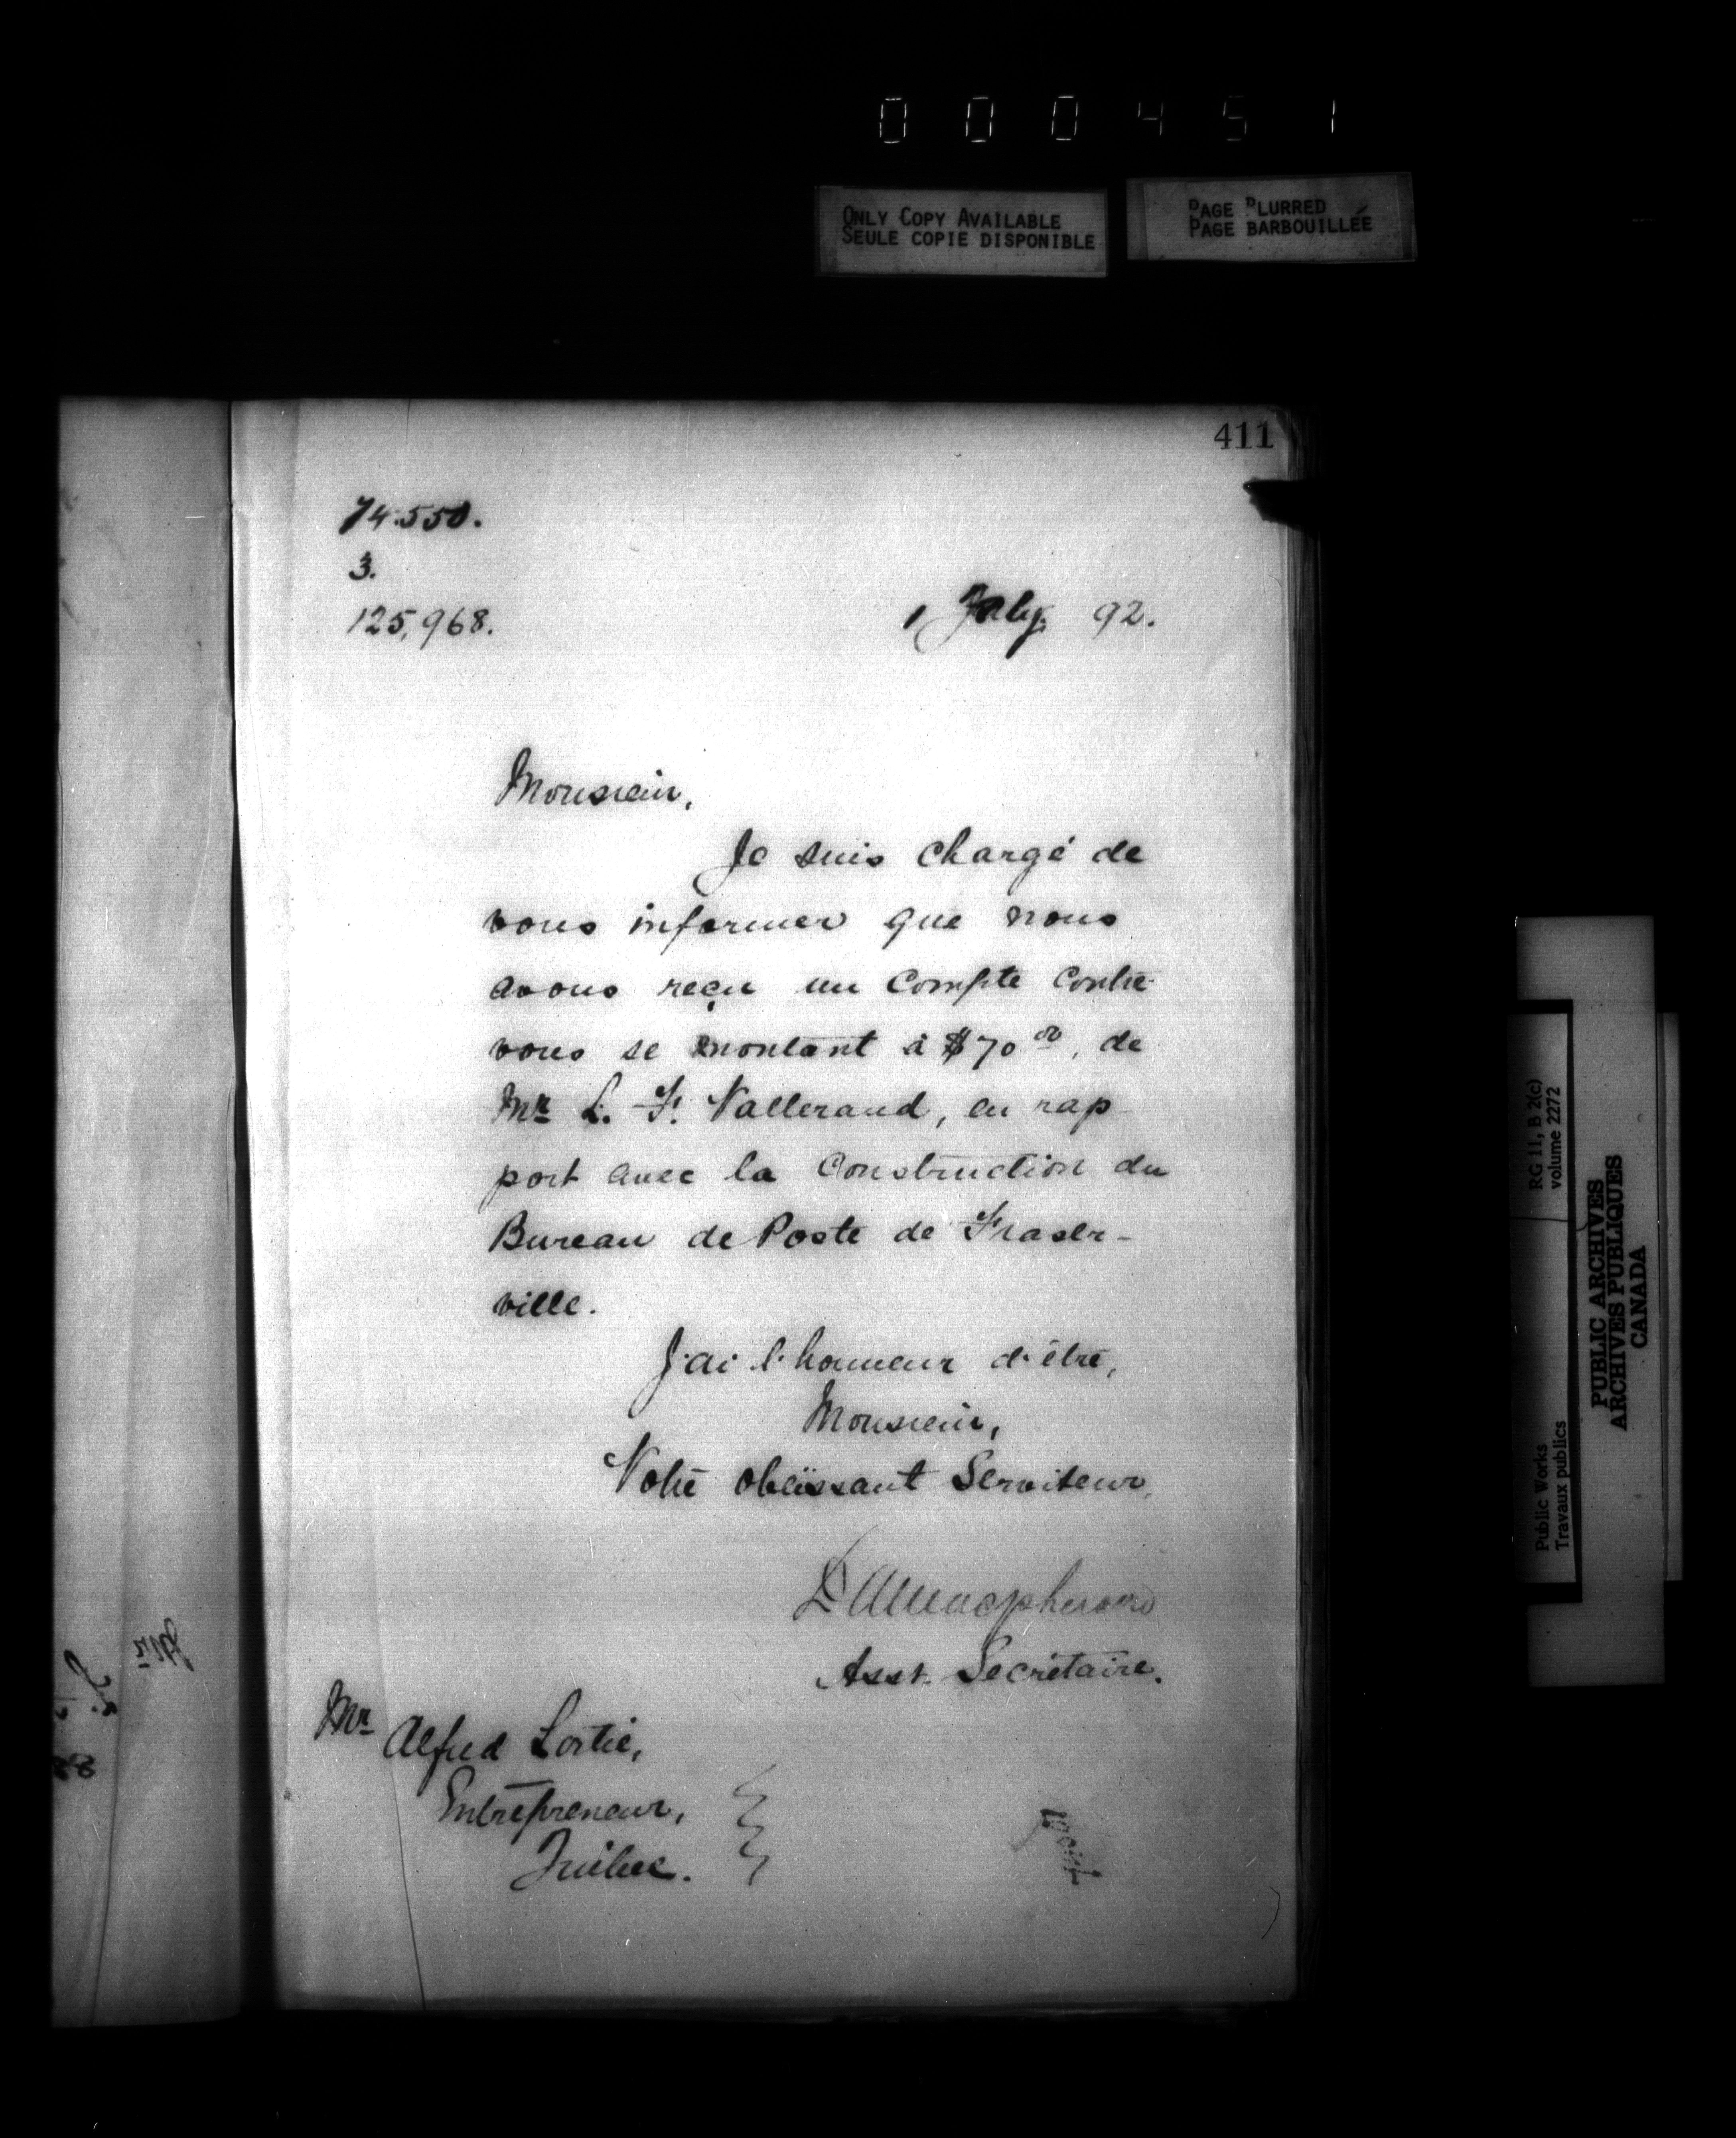 000451
ONLY COPY AVAILABLE
SEULE COPIE DISPONIBLE
PAGE BLURRED
PAGE BARBOUILLÉE
411
74.550.
3.
125,968.
1 July 92.
Monsieur,
Je suis chargé de
vous informer que nous
avons reçu un Compte contre
vous se montant à $70 00, de
Mr L. F. Vallerand, en rap
port avec la Construction du
Bureau de Poste de Fraser-
ville.
J'ai l'honneur d'être,
Monsieur,
Votre obéissant Serviteur,
Asst. Secrétaire.
Mr Alfred Lortie,
Entrepreneur,
Québec.
RG 11, B 2(c)
volume 2272
Public Works
Travaux publics
PUBLIC ARCHIVES
ARCHIVES PUBLIQUES
CANADA